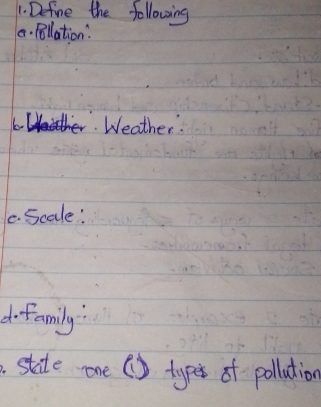 1. Define the following
a. Pollation:
b. Weather:
c. Scale:
d. Family:
. State one (1) types of pollution